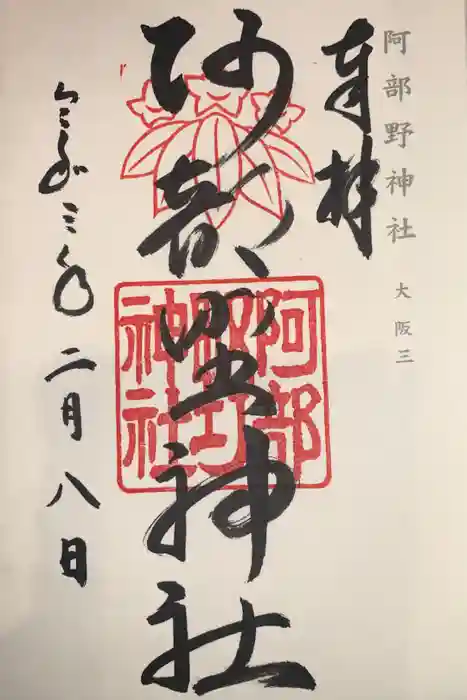 阿部野神社 大阪三
奉拝
阿部野神社
阿部野神社
令和三年
二月八日